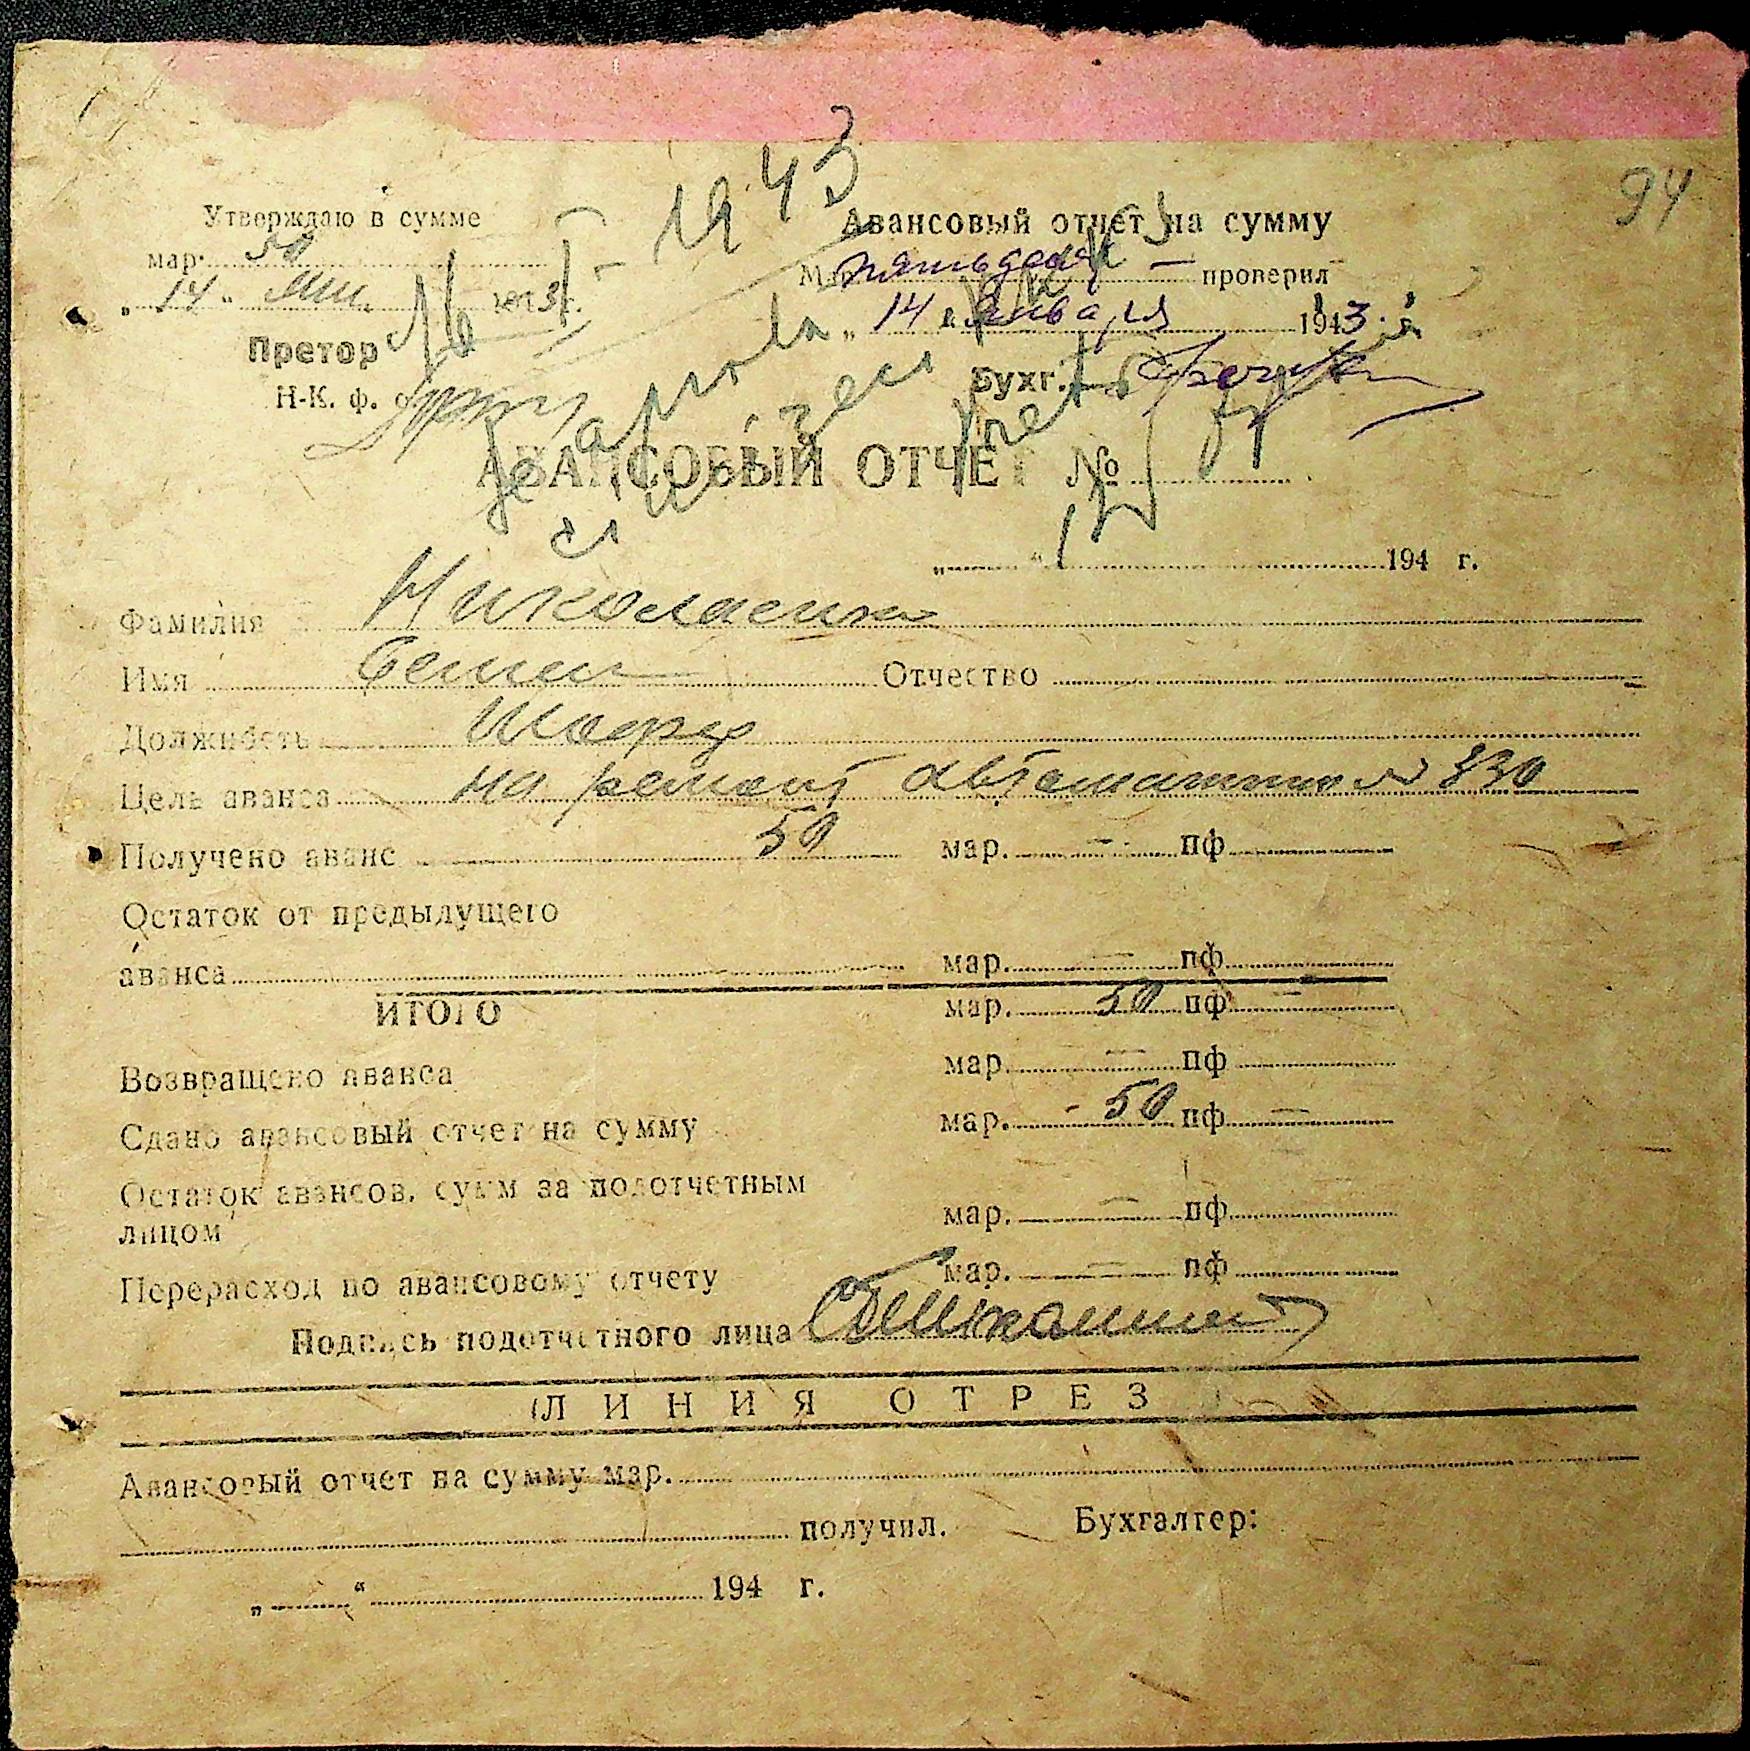 94
1943
Утверждаю в сумме
мар. 50
„14“ 1943 г.
Претор
Н-к. ф. о.
Авансовый отчет на сумму
Мар. пятьдесят — проверил
„14“ января 1943 г.
Бухг.
АВАНСОВЫЙ ОТЧЕТ №
„ “ 194 г.
Фамилия Николаенко
Имя Семен Отчество
Должность Шофер
Цель аванса на ремонт автомашины № 830
Получено аванс 50 мар. — пф.
Остаток от предыдущего
аванса мар. — пф.
ИТОГО мар. 50 пф. —
Возвращено аванса мар. — пф.
Сдано авансовый отчет на сумму мар. - 50 пф. —
Остаток авансов. сумм за подотчетным
лицом мар. — пф.
Перерасход по авансовому отчету мар. — пф.
Подпись подотчетного лица
ЛИНИЯ ОТРЕЗ
Авансовый отчет на сумму мар.
получил. Бухгалтер:
„ “ 194 г.